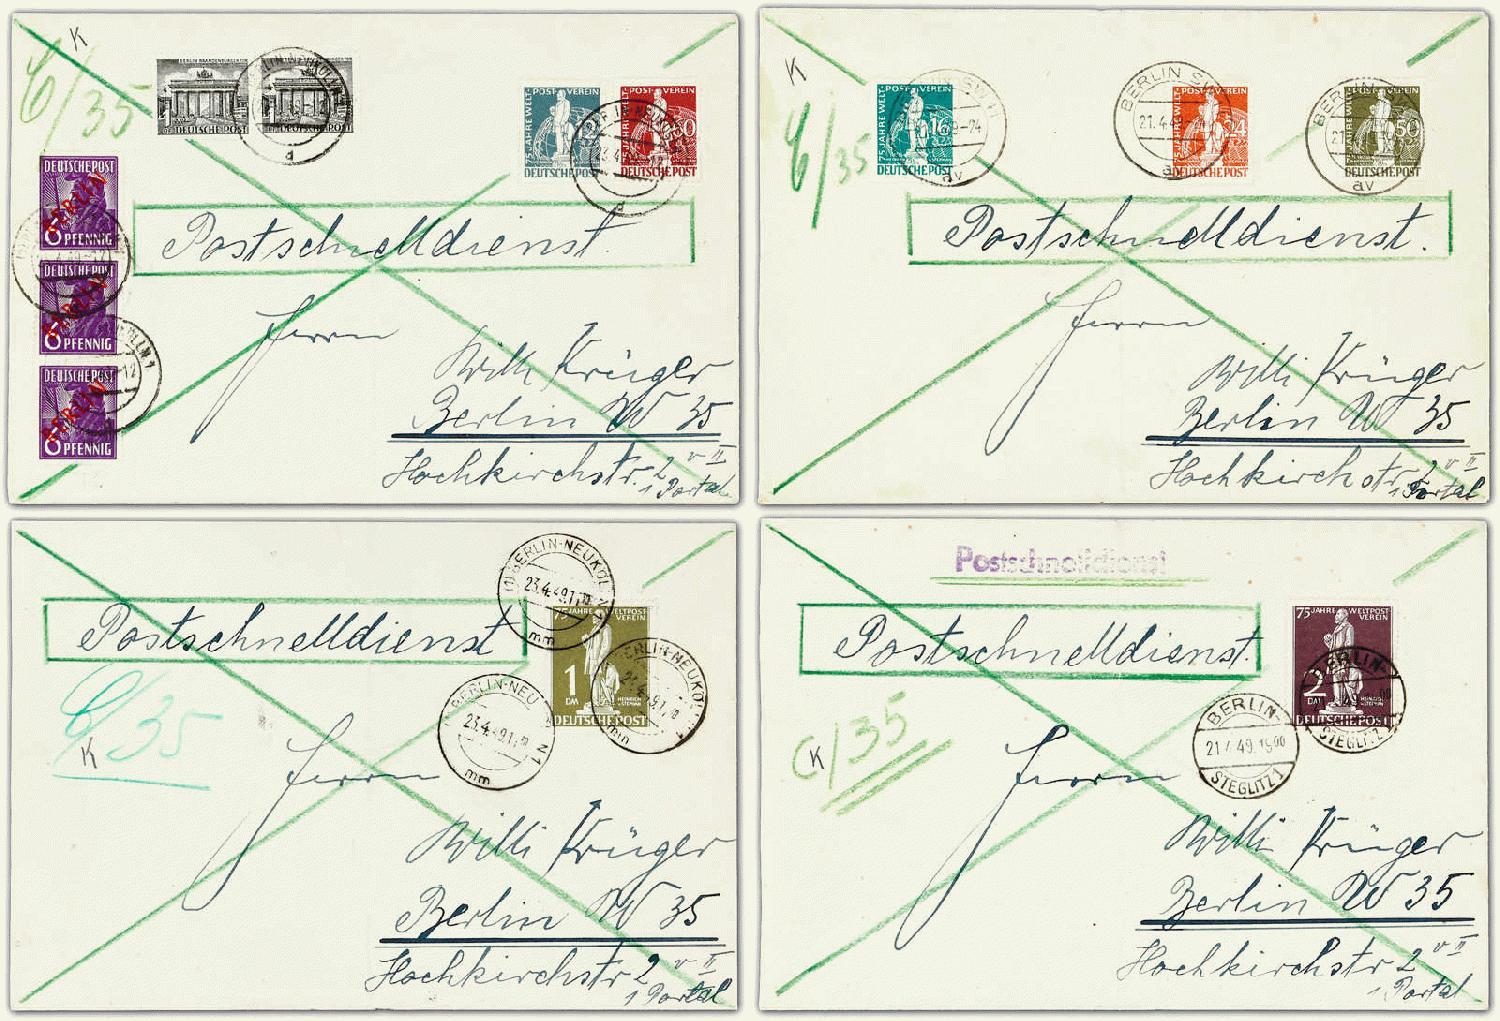 K
/35
BERLIN BRANDENBURGER TOR
1 DEUTSCHE POST
1 DEUTSCHE POST
75 JAHRE WELTPOSTVEREIN
DEUTSCHE POST
DEUTSCHE POST
DEUTSCHE POST
BERLIN
6 PFENNIG
DEUTSCHE POST
BERLIN
6 PFENNIG
DEUTSCHE POST
BERLIN
6 PFENNIG
Postschnelldienst.
Herrn
Willi Krüger
Berlin W 35
Hochkirchstr. 2 v II
1 Portal
K
/35
75 JAHRE WELTPOSTVEREIN
16
DEUTSCHE POST
BERLIN SW
21.4.49
24
DEUTSCHE POST
av
50
DEUTSCHE POST
av
Postschnelldienst.
Herrn
Willi Krüger
Berlin W 35
Hochkirchstr. 2 v II
1 Portal
(1) BERLIN-NEUKÖLLN
23.4.49
mm
75 JAHRE WELTPOSTVEREIN
1 DM
HEINRICH v. STEPHAN
DEUTSCHE POST
BERLIN-NEUKÖLLN 1
mm
BERLIN-NEU
23.4.49
mm
Postschnelldienst
/35
K
Herrn
Willi Krüger
Berlin W 35
Hochkirchstr 2 v II
1 Portal
Postschnelldienst
Postschnelldienst.
75 JAHRE WELTPOSTVEREIN
2 DM
DEUTSCHE POST
BERLIN-
STEGLITZ 1
BERLIN-
21.4.49.19 00
STEGLITZ 1
C/35
K
Herrn
Willi Krüger
Berlin W 35
Hochkirchstr 2 v II
1 Portal